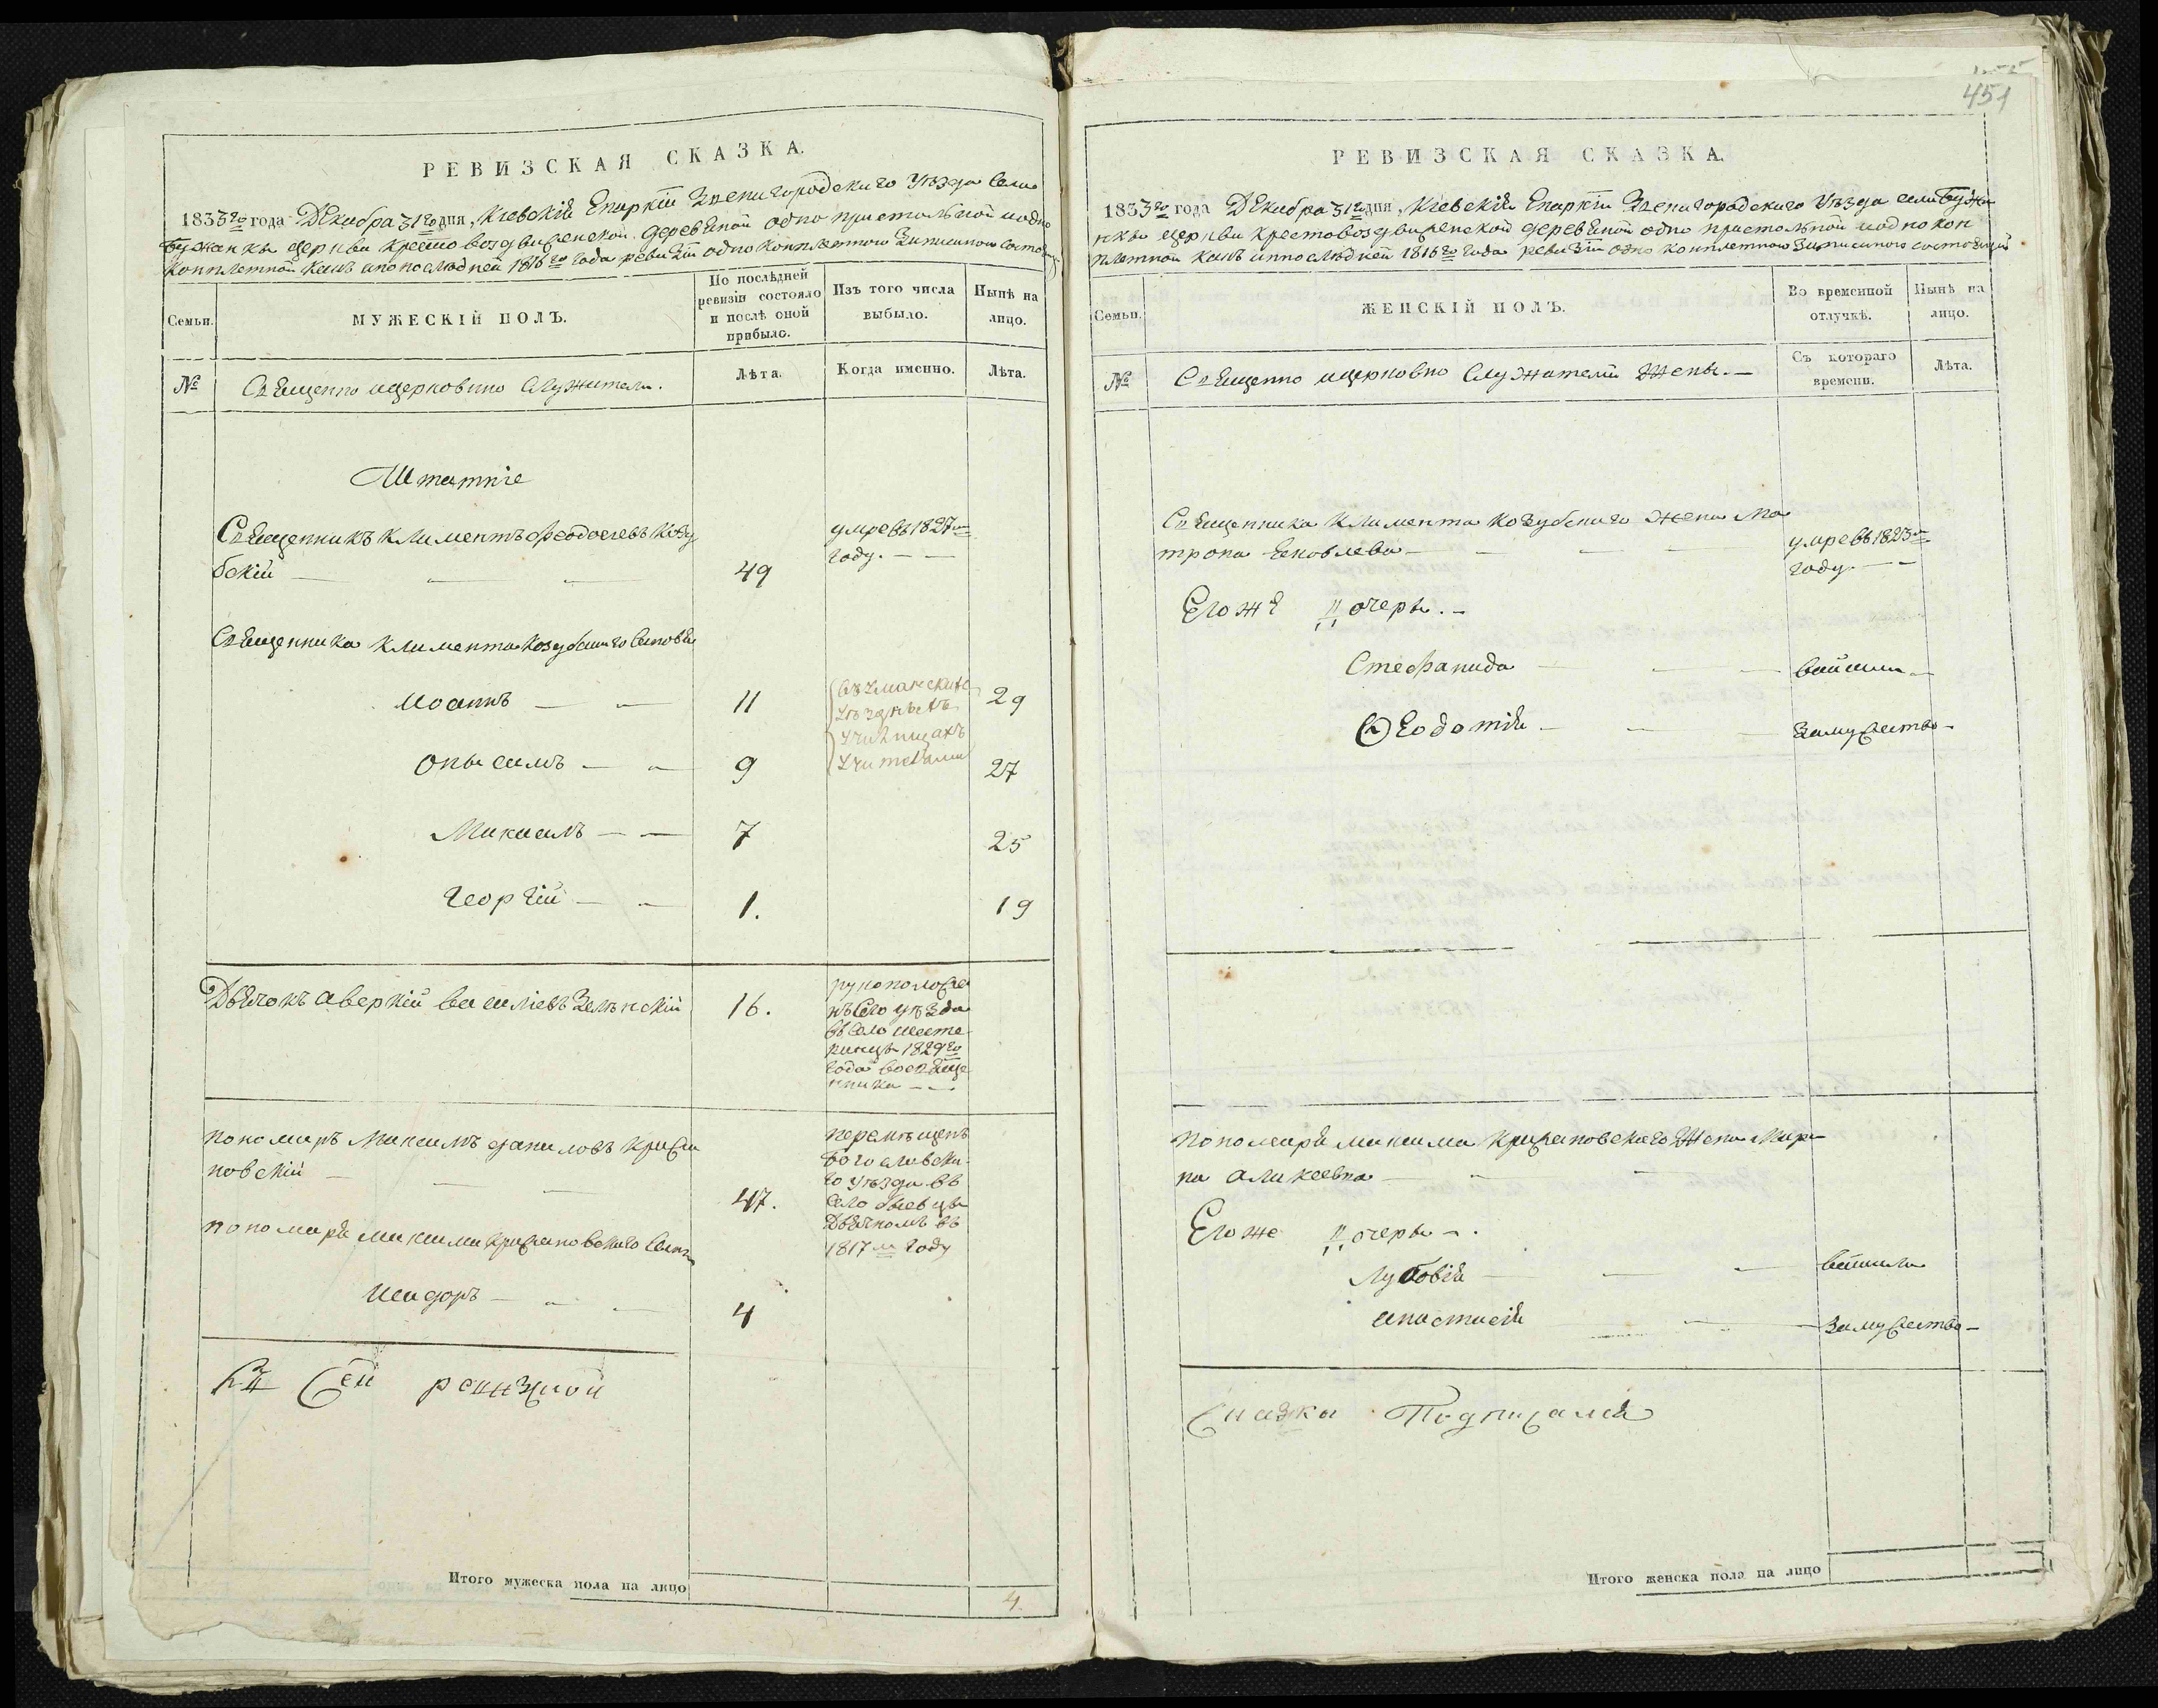 РЕВИЗСКАЯ СКАЗКА.
1833го года Декабра 31го дня, Кіевскій Епархіи Звенигородскаго Уѣзда Села
Бужанкы Церкви Крестовоздвиженской деревяной одно престольной иодно
комплетной какъ ипопослѣдней 1816го года ревизіи одно комплетною Записаною
Семьи.
МУЖЕСКІЙ ПОЛЪ.
По послѣдней ревизіи состояло и послѣ оной прибыло.
Изъ того числа выбыло.
Нынѣ на лицо.
№
Священно ицерковно Служители.
Лѣта.
Когда именно.
Лѣта.
Штатніе
Священникъ Климентъ Феодосіевъ Козу
бскій
49
умре въ 1827м
году.
Священника Климента Козубскаго Сыновья
Иоаннъ
11
29
Уѣздныхъ
Училищахъ
Учителами
Онысимъ
9
27
Михаилъ
7
25
Георгій
1.
19
Дьячокъ Аверкій Василіевъ Зелѣнскій
16.
рукоположе
нъ Сего уѣзда
въ Село Шесте
ринцы 1829го
Года восвяще
нника
Пономаръ Максимъ Даниловъ Крижа
новскій
47.
перемѣщенъ
Богославска
го уѣзда въ
Село
Дьячкомъ въ
1817м Году
Пономаря Максима Крижановскаго Сынъ
Исидоръ
4
Къ Сей ревизкой
Итого мужеска пола на лицо
4
451
РЕВИЗСКАЯ СКАЗКА.
1833го года Декабра 31го дня, Кіевскій Епархіи Звенигородскаго Уѣзда села Бужа
нкы Церкви Крестовоздвиженской деревяной одно престольной иодно ком
плетной какъ ипослѣдней 1816го Года ревизіи одно комплетною Записаною состоящей
Семьи.
ЖЕНСКІЙ ПОЛЪ.
Во временной отлучкѣ.
Нынѣ на лицо.
№
Священно ицерковно Служителей Жены.
Съ котораго времени.
Лѣта.
Священника Климента Козубскаго Жена Ма
трона Яковлева
умре въ 1823м
году.
Егоже дочеры.
Стефанида
вышли
Феодотія
Замужество
Пономаря Максима Крижановскаго Жена Мари
на Аликсевна
Егоже дочеры.
Лубовія
вышли
Анастасія
Замужество
Сказкы Подписался
Итого женска пола на лицо